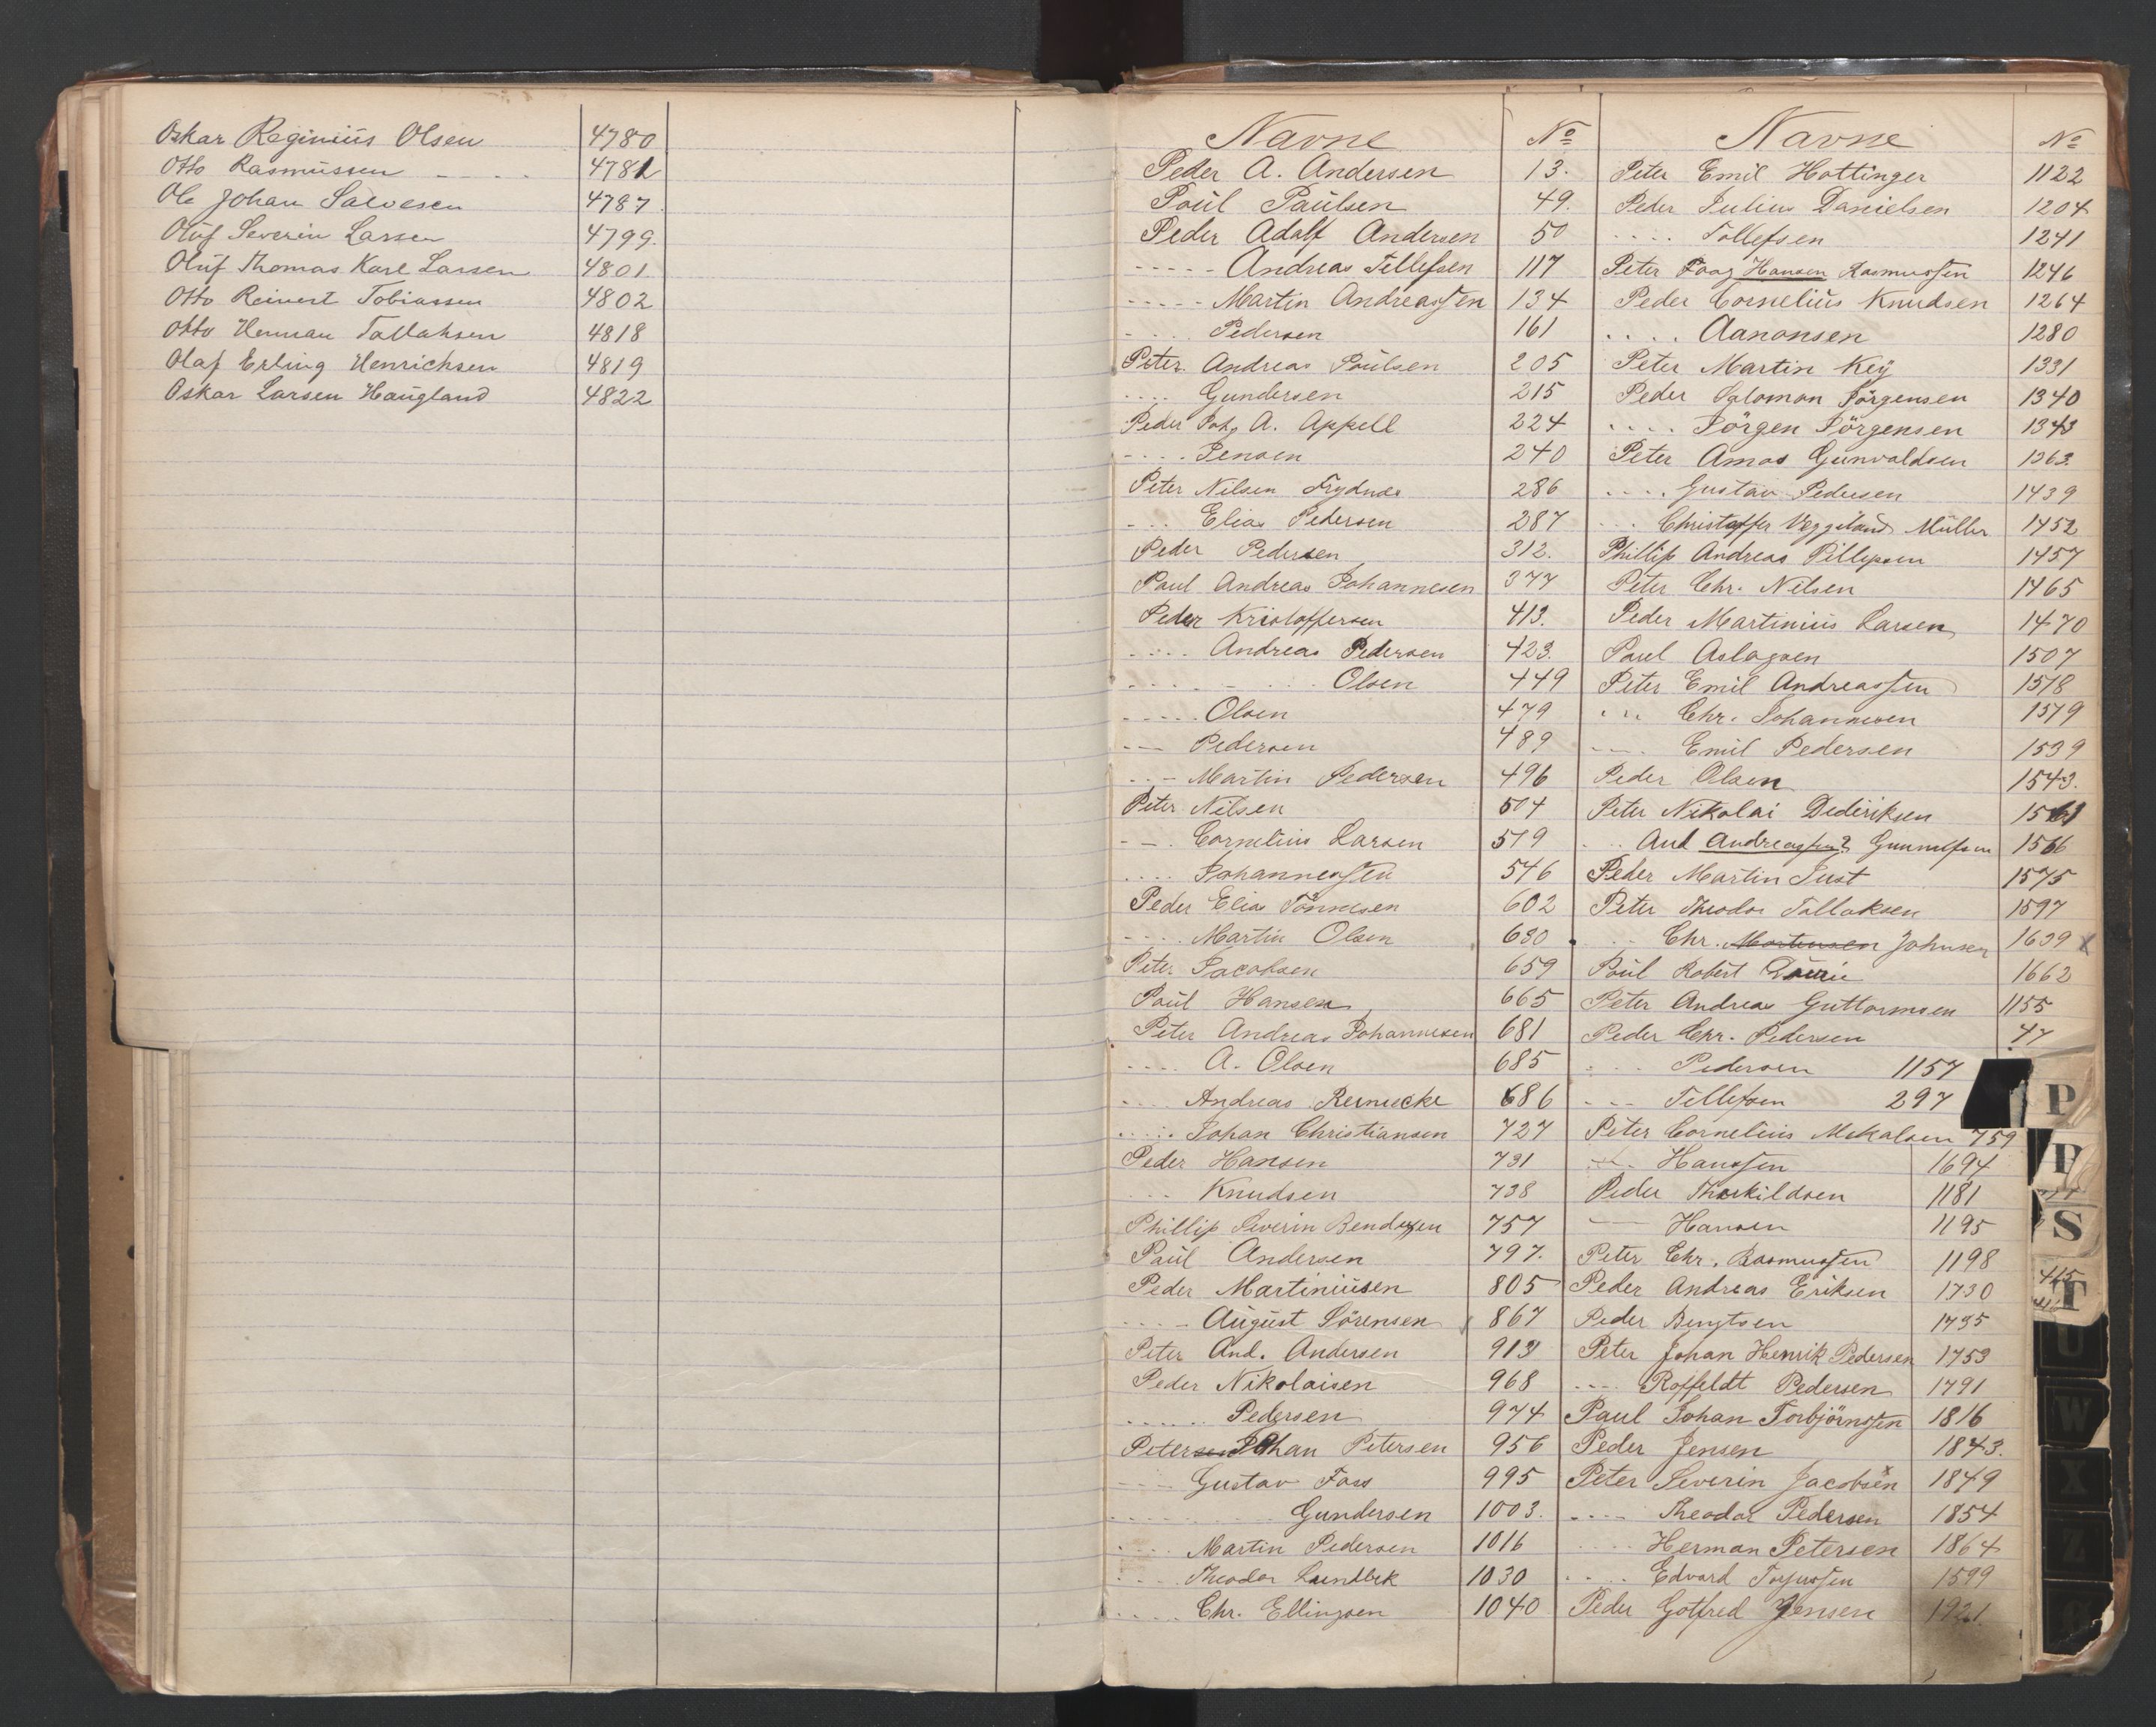 Oskar Reginius Olsen 4780
Otto Rasmussen - - - - 4781
Ole Johan Salvesen 4787.
Oluf Severin Larsen 4799.
Oluf Thomas Karl Larsen 4801
Otto Reinert Tobiassen 4802
Otto Herman Tallaksen 4818
Olaf Erling Henrichsen 4819
Oskar Larsen Haugland 4822
Navne No
Peder A. Andersen 13.
Poul Paulsen 49.
Peder Adolf Andersen 50
- - - - - Andreas Tellefsen 117
- - - - - Martin Andreassen 134
- . . . Pedersen 161
Peter Andreas Poulsen 205
. . . . Gundersen 215
Peder Joh. A. Appell 224
- . . . Jensen 240
Peter Nilsen Frydnæs 286
- . . Elias Pedersen 287
Peder Pedersen 312.
Paul Andreas Johannesen 377
Peder Kristoffersen 413.
. . . . Andreas Pedersen 423.
. . . . - . . . Olsen 449
- - - - . Olsen 479
- - - Pedersen 489
- . - Martin Pedersen 496
Peter Nilsen 504
- - . Cornelius Larsen 519
. . . . Johannessen 546
Peder Elias Tönnesen 602
- . . . Martin Olsen 630
Peter Jacobsen 659
Poul Hansen 665
Peter Andreas Johannesen 681
. . . . A. Olsen 685
. . . . Andreas Reinecke 686
. . . . . Johan Christiansen 727
Peder Hansen 731
. . . Knudsen 738
Phillip Severin Bendixen 757
Paul Andersen 797.
Peder Martiniusen 805
. . . - August Sörensen 867
Peter And. Andersen 913
Peder Nikolaisen 968
. . . . . . Pedersen 974
Petersen Johan Petersen 956
- - - Gustav Foss 995
. . . . . . . . Gundersen 1003.
. . . . Martin Pedersen 1016
. . . . Theodor Lundbek 1030
. . . . Chr. Ellingsen 1040
Navne No
Peter Emil Hottinger 1122
Peder Julius Danielsen 1204
. . . . Tollefsen 1241
Peter Hansen Rasmussen 1246
Peder Cornelius Knudsen 1264
. . . . Aanonsen 1280
Peter Martin Keÿ 1331
Peder Salomon Jörgensen 1340
. . . . Jörgen Jörgensen 1343
Peter Amos Gunvaldsen 1363.
. . . . Gustav Pedersen 1439
. . Christoffer Veggeland Müller 1452
Phillip Andreas Pillipsen 1457
Peter Chr. Nilsen 1465
Peder Martinius Larsen 1470
Paul Aslagsen 1507
Peter Emil Andreassen 1518
. . . Chr. Johannesen 1519
- - - . Emil Pedersen 1539
Peder Olsen 1543.
Peter Nikolai Dederiksen 1561
. . And Andreassen? Gunnufsen 1566
Peder Martin Just 1575
Peter Theodor Tallaksen 1597
. . . Chr. Mortensen Johnsen 1639 x
Poul Robert 1662
Peter Andreas Guttormsen 1155
Peder Chr. Pedersen 47
. . . Pedersen 1157
- - - Tellefsen 297
Peter Cornelius Mikalsen 759
- . . Hanssen 1694
Peder Therkildsen 1181
- - Hansen 1195
Peter Chr. Rasmussen 1198
Peder Andreas Eriksen 1730
Peder Bengtsen 1735
Peter Johan Henrik Pedersen 1753
. . . . Roffeldt Pedersen 1791
Paul Johan Torbjörnsen 1816
Peder Jensen 1843.
Peter Severin Jacobsen x 1849
. . . . Theodor Pedersen 1854
. . . . Herman Petersen 1864
. . . . Edvard Torjussen 1599
Peder Gotfred Jensen 1921.
P
P
S
415
T
U
W
X
Z